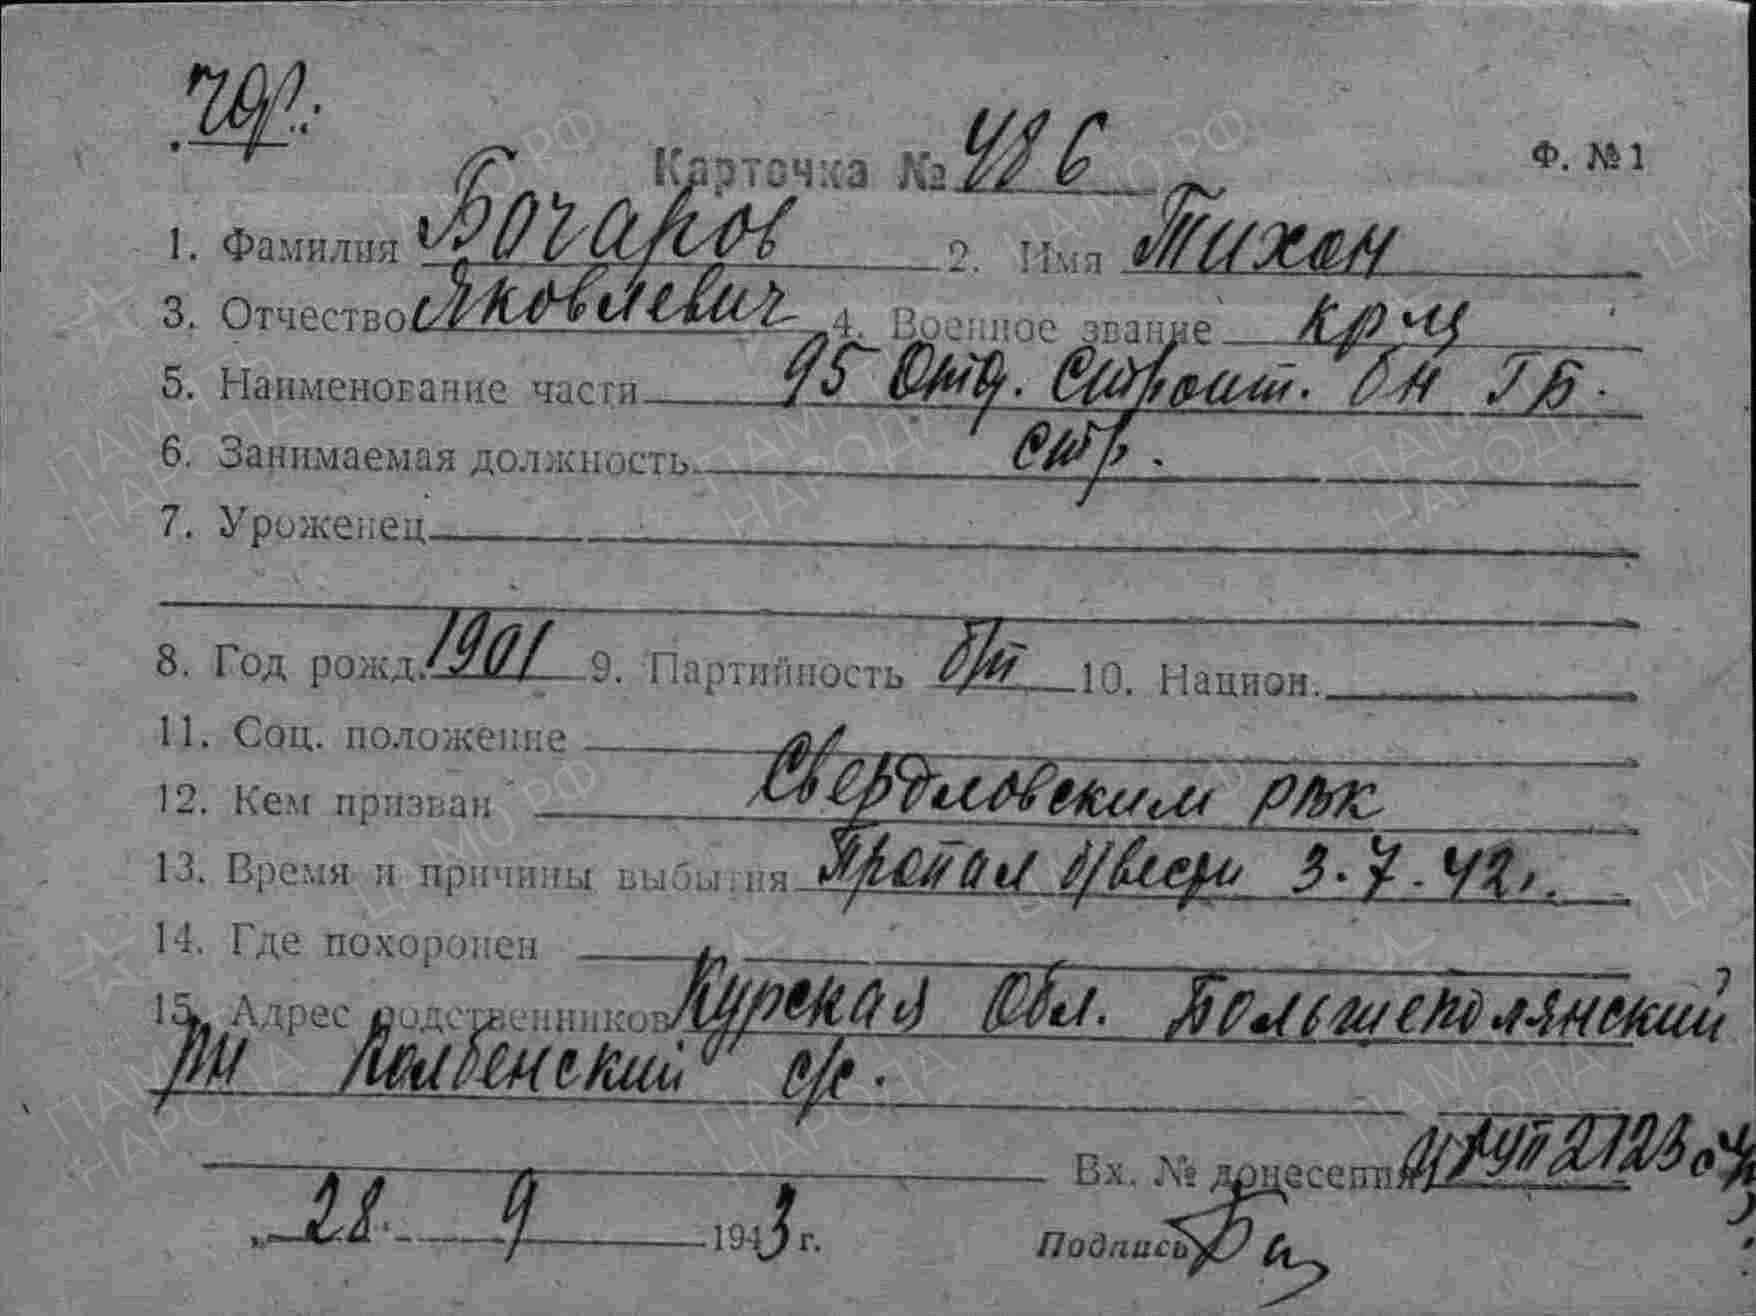 Карточка № 486 Ф. №1
1. Фамилия Бочаров 2. Имя Тихон
3. Отчество Яковлевич 4. Военное звание кр-ц
5. Наименование части 95 Отд. строит. бн ГБ.
6. Занимаемая должность стр.
7. Уроженец
8. Год рожд. 1901 9. Партийность б/п 10. Национ.
11. Соц. положение
12. Кем призван Свердловским РВК
13. Время и причины выбытия Пропал б/вести 3.7.42г.
14. Где похоронен
15. Адрес родственников Курская Обл. Большеполянский
рн Колбенский с/с.
Вх. № донесения 2123
„ 28 9 1943 г. Подпись
ПАМЯТЬ НАРОДА
ЦАМО РФ